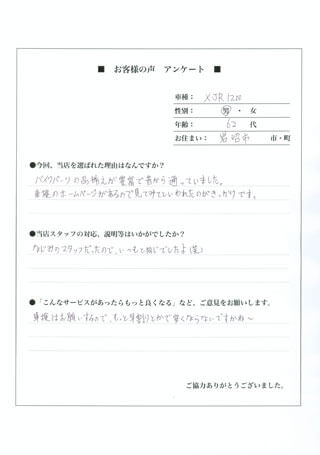 ■ お客様の声 アンケート ■
車種： XJR1200
性別： 男 ・ 女
年齢： 62 代
お住まい： 岩沼市 市・町
●今回、当店を選ばれた理由はなんですか？
バイクパーツの品揃えが豊富で昔から通っていました。
車検のホームページがあるので見てみてといわれたのがきっかけです。
●当店スタッフの対応、説明等はいかがでしたか？
なじみのスタッフだったので、いつもと同じでしたよ(笑)
●「こんなサービスがあったらもっと良くなる」など、ご意見をお願いします。
車検はお願いするので、もっと早割りとかで安くならないですかね～
ご協力ありがとうございました。